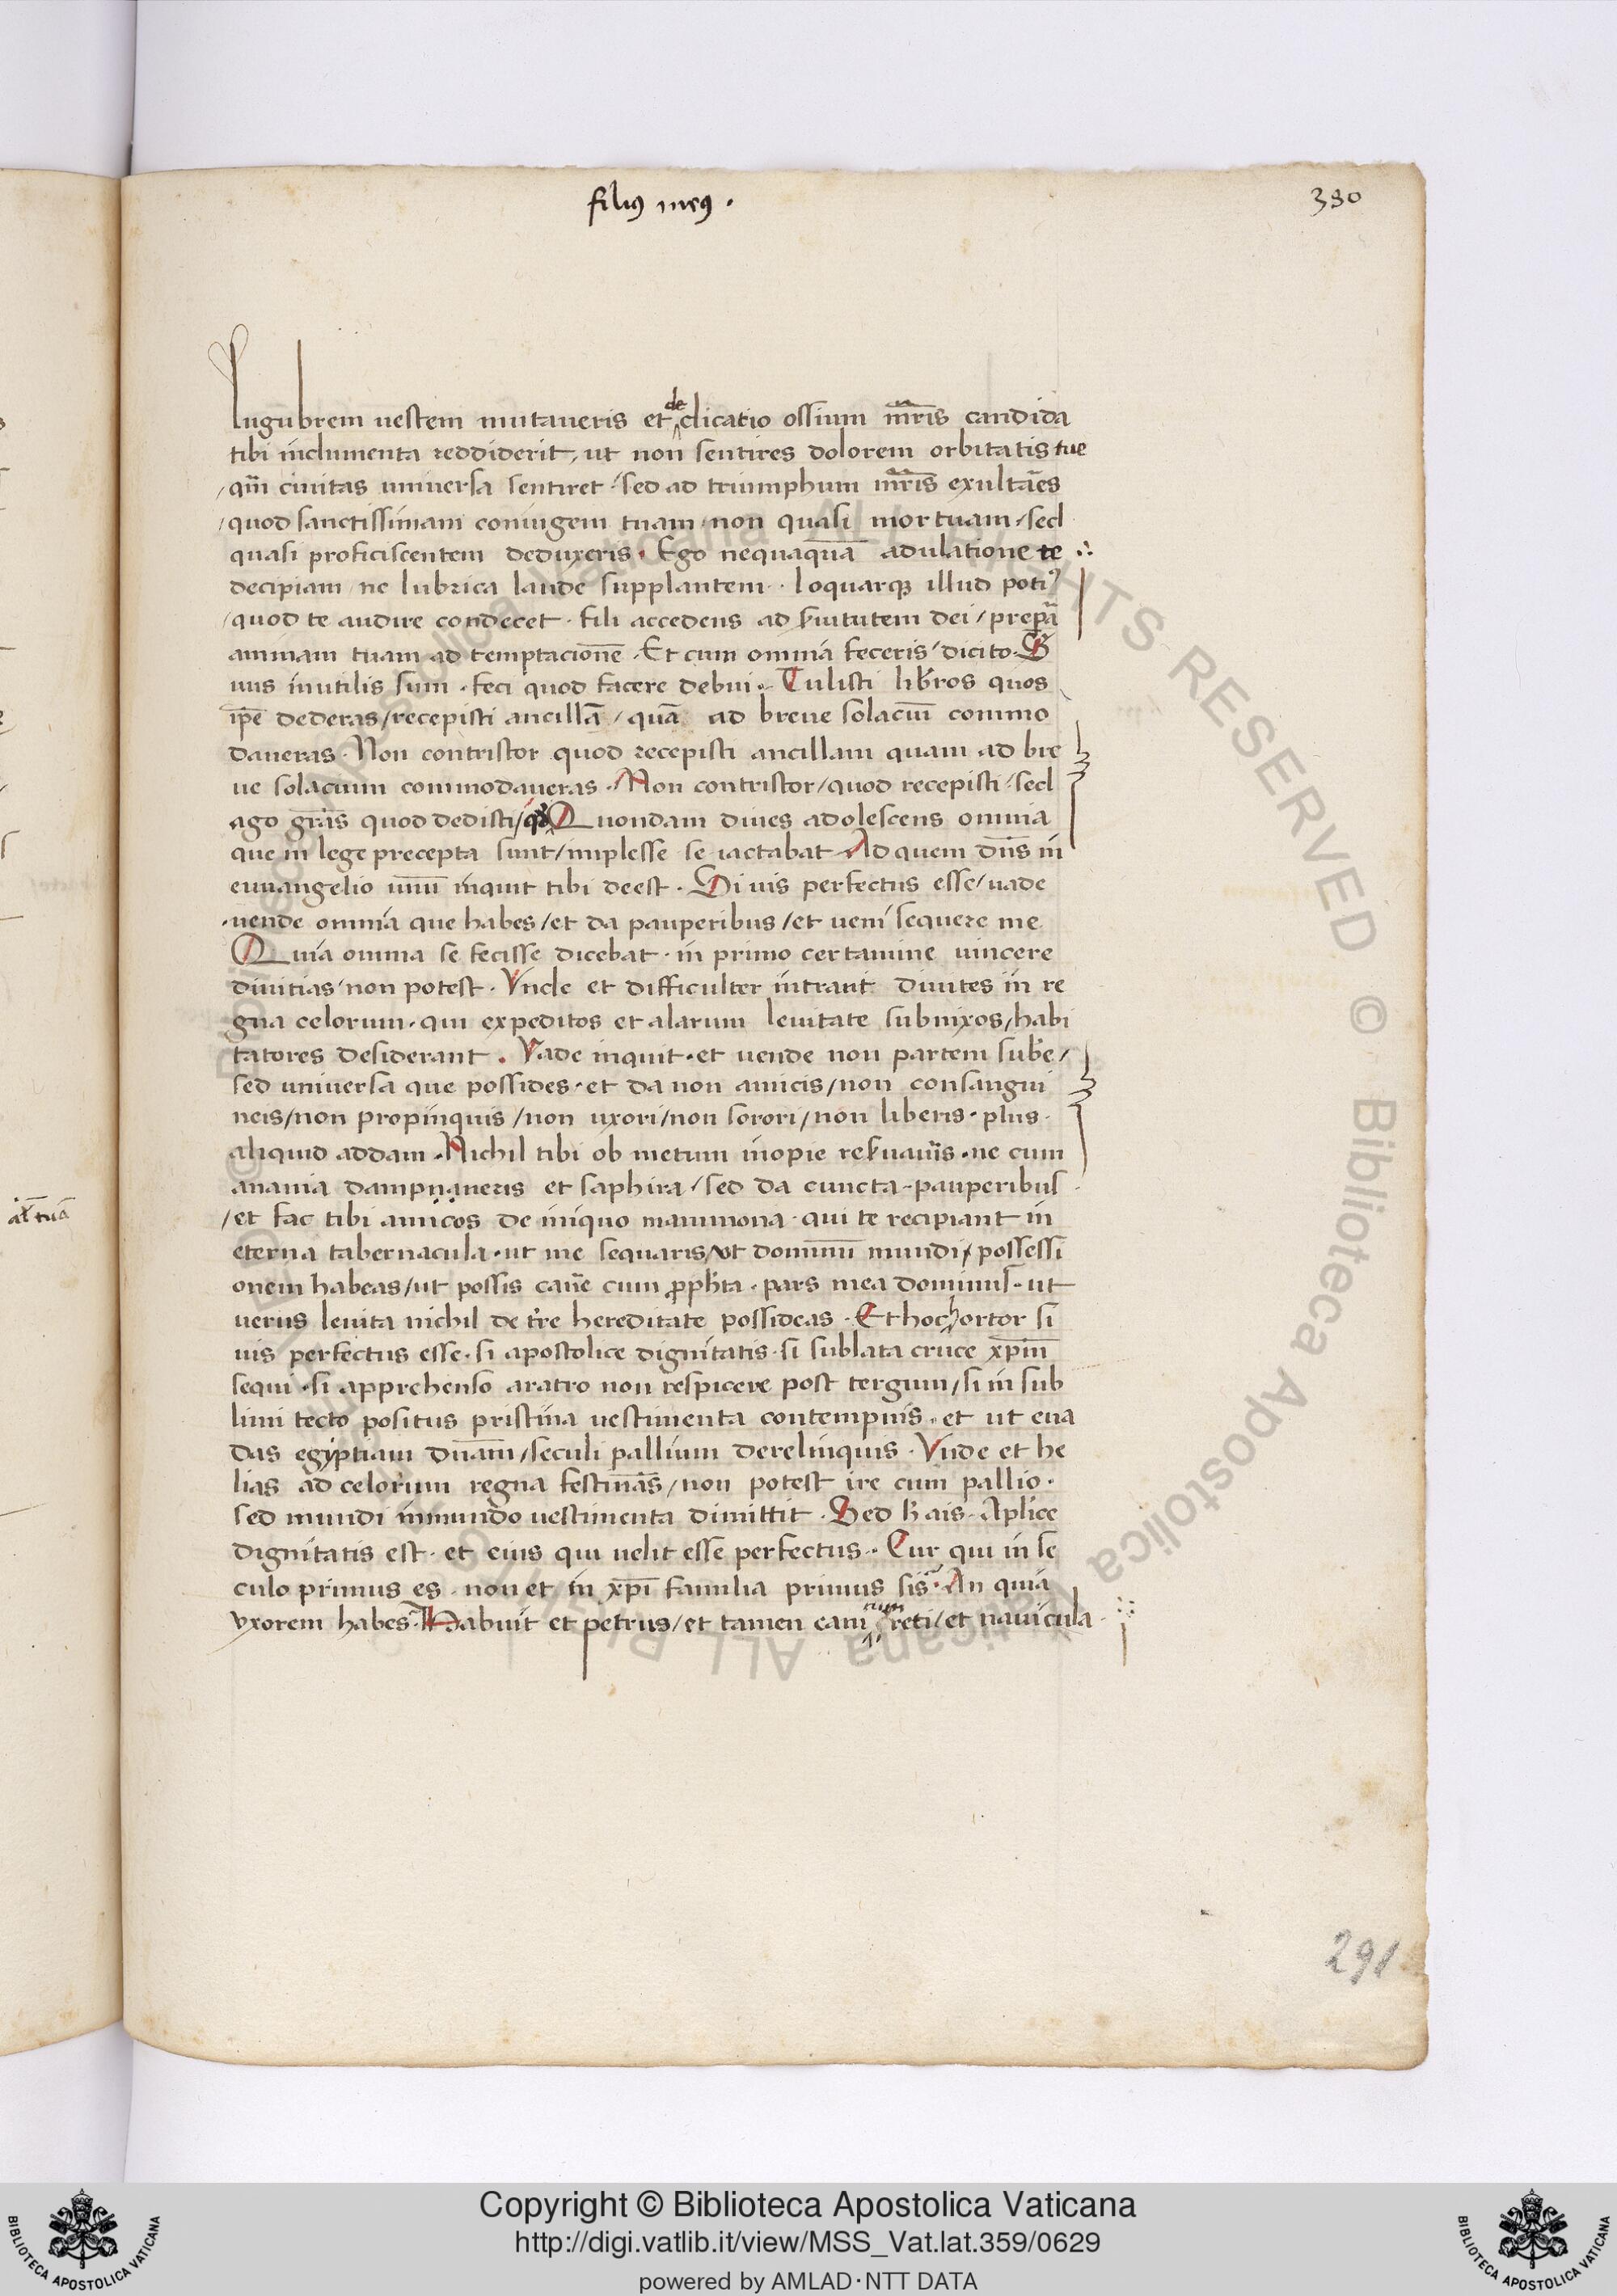 filiꝰ meꝰ .
380
lugubrem uestem mutaueris et dedicatio ossium mr̄is candida
tibi indumenta reddiderit, ut non sentires dolorem orbitatis tue
/qm̄ ciuitas uniuersa sentiret · sed ad triumphum mr̄is exultães
/quod sanctissimam coniugem tuam / non quasi mortuam · sed
quasi proficiscentem deduxeris · Ego nequaquā adulatione te
decipiam / ne lubrica laude supplantem · loquarqꝫ illud potiꝰ
/quod te audire condecet · fili accedens ad ẜuitutem dei / prepā
animam tuam ad temptacionē · Et cum omnia feceris / dicito · S
uus inutilis sum · feci quod facere debui · Tulisti lib̄ros quos
ip̄e dederas / recepisti ancillā / quā ad breue solaciū commo
daueras · Non contristor quod recepisti ancillam quam ad bre
ue solacium commodaueras · Non contristor / quod recepisti · sed
ago gr̄as quod dedisti / Quondam diues adolescens omnia
que in lege precepta sunt / implesse se iactabat · Ad quem dn̄s in
euuangelio unū inquit tibi deest · Si uis perfectus esse / uade
·uende omnia que habes / et da pauperibus / et ueni sequere me
Quia omnia se fecisse dicebat · in primo certamine uincere
diuitias / non potest · Vnde et difficulter intrant diuites in re
gna celorum · qui expeditos et alarum leuitate subnixos / habi
tatores desiderant · Vade inquit · et uende non partem sub̄e /
sed uniuersa que possides · et da non amicis / non consangui
neis / non propinquis / non uxori / non sorori / non liberis · plus
aliquid addam · Nichil tibi ob metum inopie reẜuau̅is · ne cum
anania dampnaueris et saphira / sed da cuncta · pauperibus
/et fac tibi amicos de iniquo mammona · qui te recipiant in
eterna tabernacula · ut me sequaris / ut dominū mundi / possessi
onem habeas / ut possis can̄e cum ꝓph̄ta · pars mea dominus · ut
uerus leuita nichil de tr̄e hereditate possideas · Et hoc hortor si
uis perfectus esse · si apostolice dignitatis · si sublata cruce xp̄m
sequi · si apprehenso aratro non respicere post tergum / si in sub
limi tecto positus pristina uestimenta contempnis · et ut eua
das egyptiam dn̄am / seculi pallium derelinquis · Vnde et he
lias ad celorum regna festinās / non potest ire cum pallio ·
sed mundi inmundo uestimenta dimittit · Sed h̄ ais · Apl̄ice
dignitatis est · et eius qui uelit esse perfectus · Cur qui in se
culo primus es · non et in xp̄i familia primus sis · An quia
vxorem habes · Habuit et petrus / et tamen eam cum reti / et nauicula
al̄ tuā
291
Copyright © Biblioteca Apostolica Vaticana
http://digi.vatlib.it/view/MSS_Vat.lat.359/0629
powered by AMLAD·NTT DATA
BIBLIOTECA APOSTOLICA VATICANA
BIBLIOTECA APOSTOLICA VATICANA